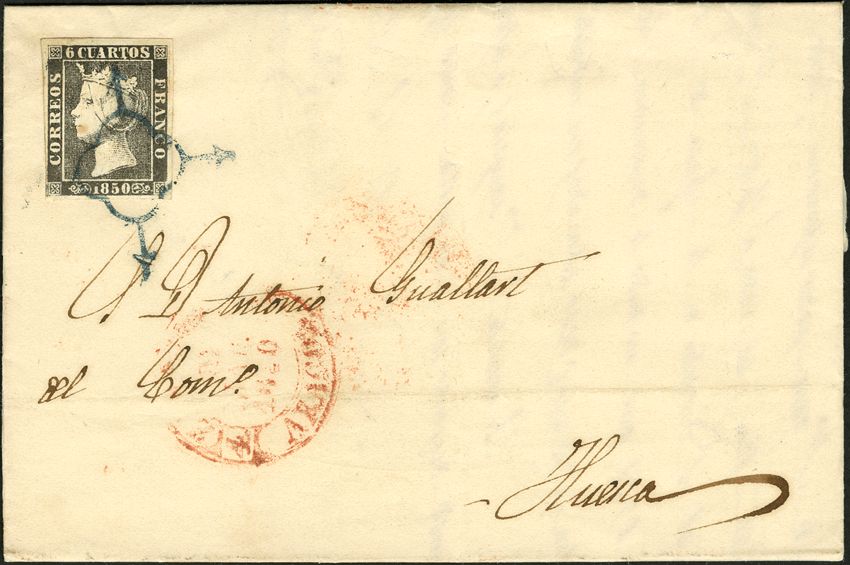 6 CUARTOS
CORREOS
FRANCO
1850
S. D. Antonio Guallart
del Como.
Huesca